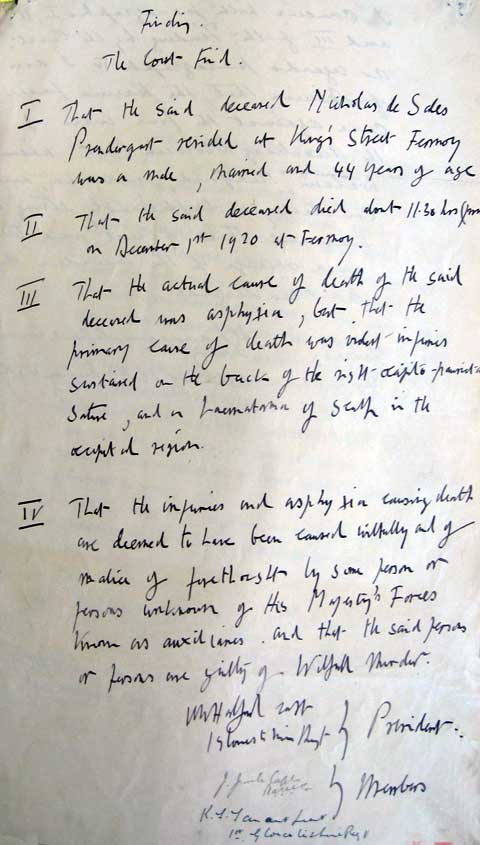 Finding.
The Court Find.
I That the said deceased Nicholas de Sales
Prendergast resided at King's Street Fermoy
was a male, married and 44 years of age
II That the said deceased died about 11.30 hrs (pm)
on December 1st 1920 at Fermoy.
III That the actual cause of death of the said
deceased was asphyxia, but that the
primary cause of death was violent injuries
sustained on the back of the right occipto-parietal
suture, and a haematoma of scalp in the
occipital region.
IV That the injuries and asphyxia causing death
are deemed to have been caused wilfully and of
malice of forethought by some person or
persons unknown of His Majesty's Forces
known as auxiliaries. and that the said persons
or persons are guilty of Wilfull Murder.
} President.
} Members
1st Gloucestershire Regt